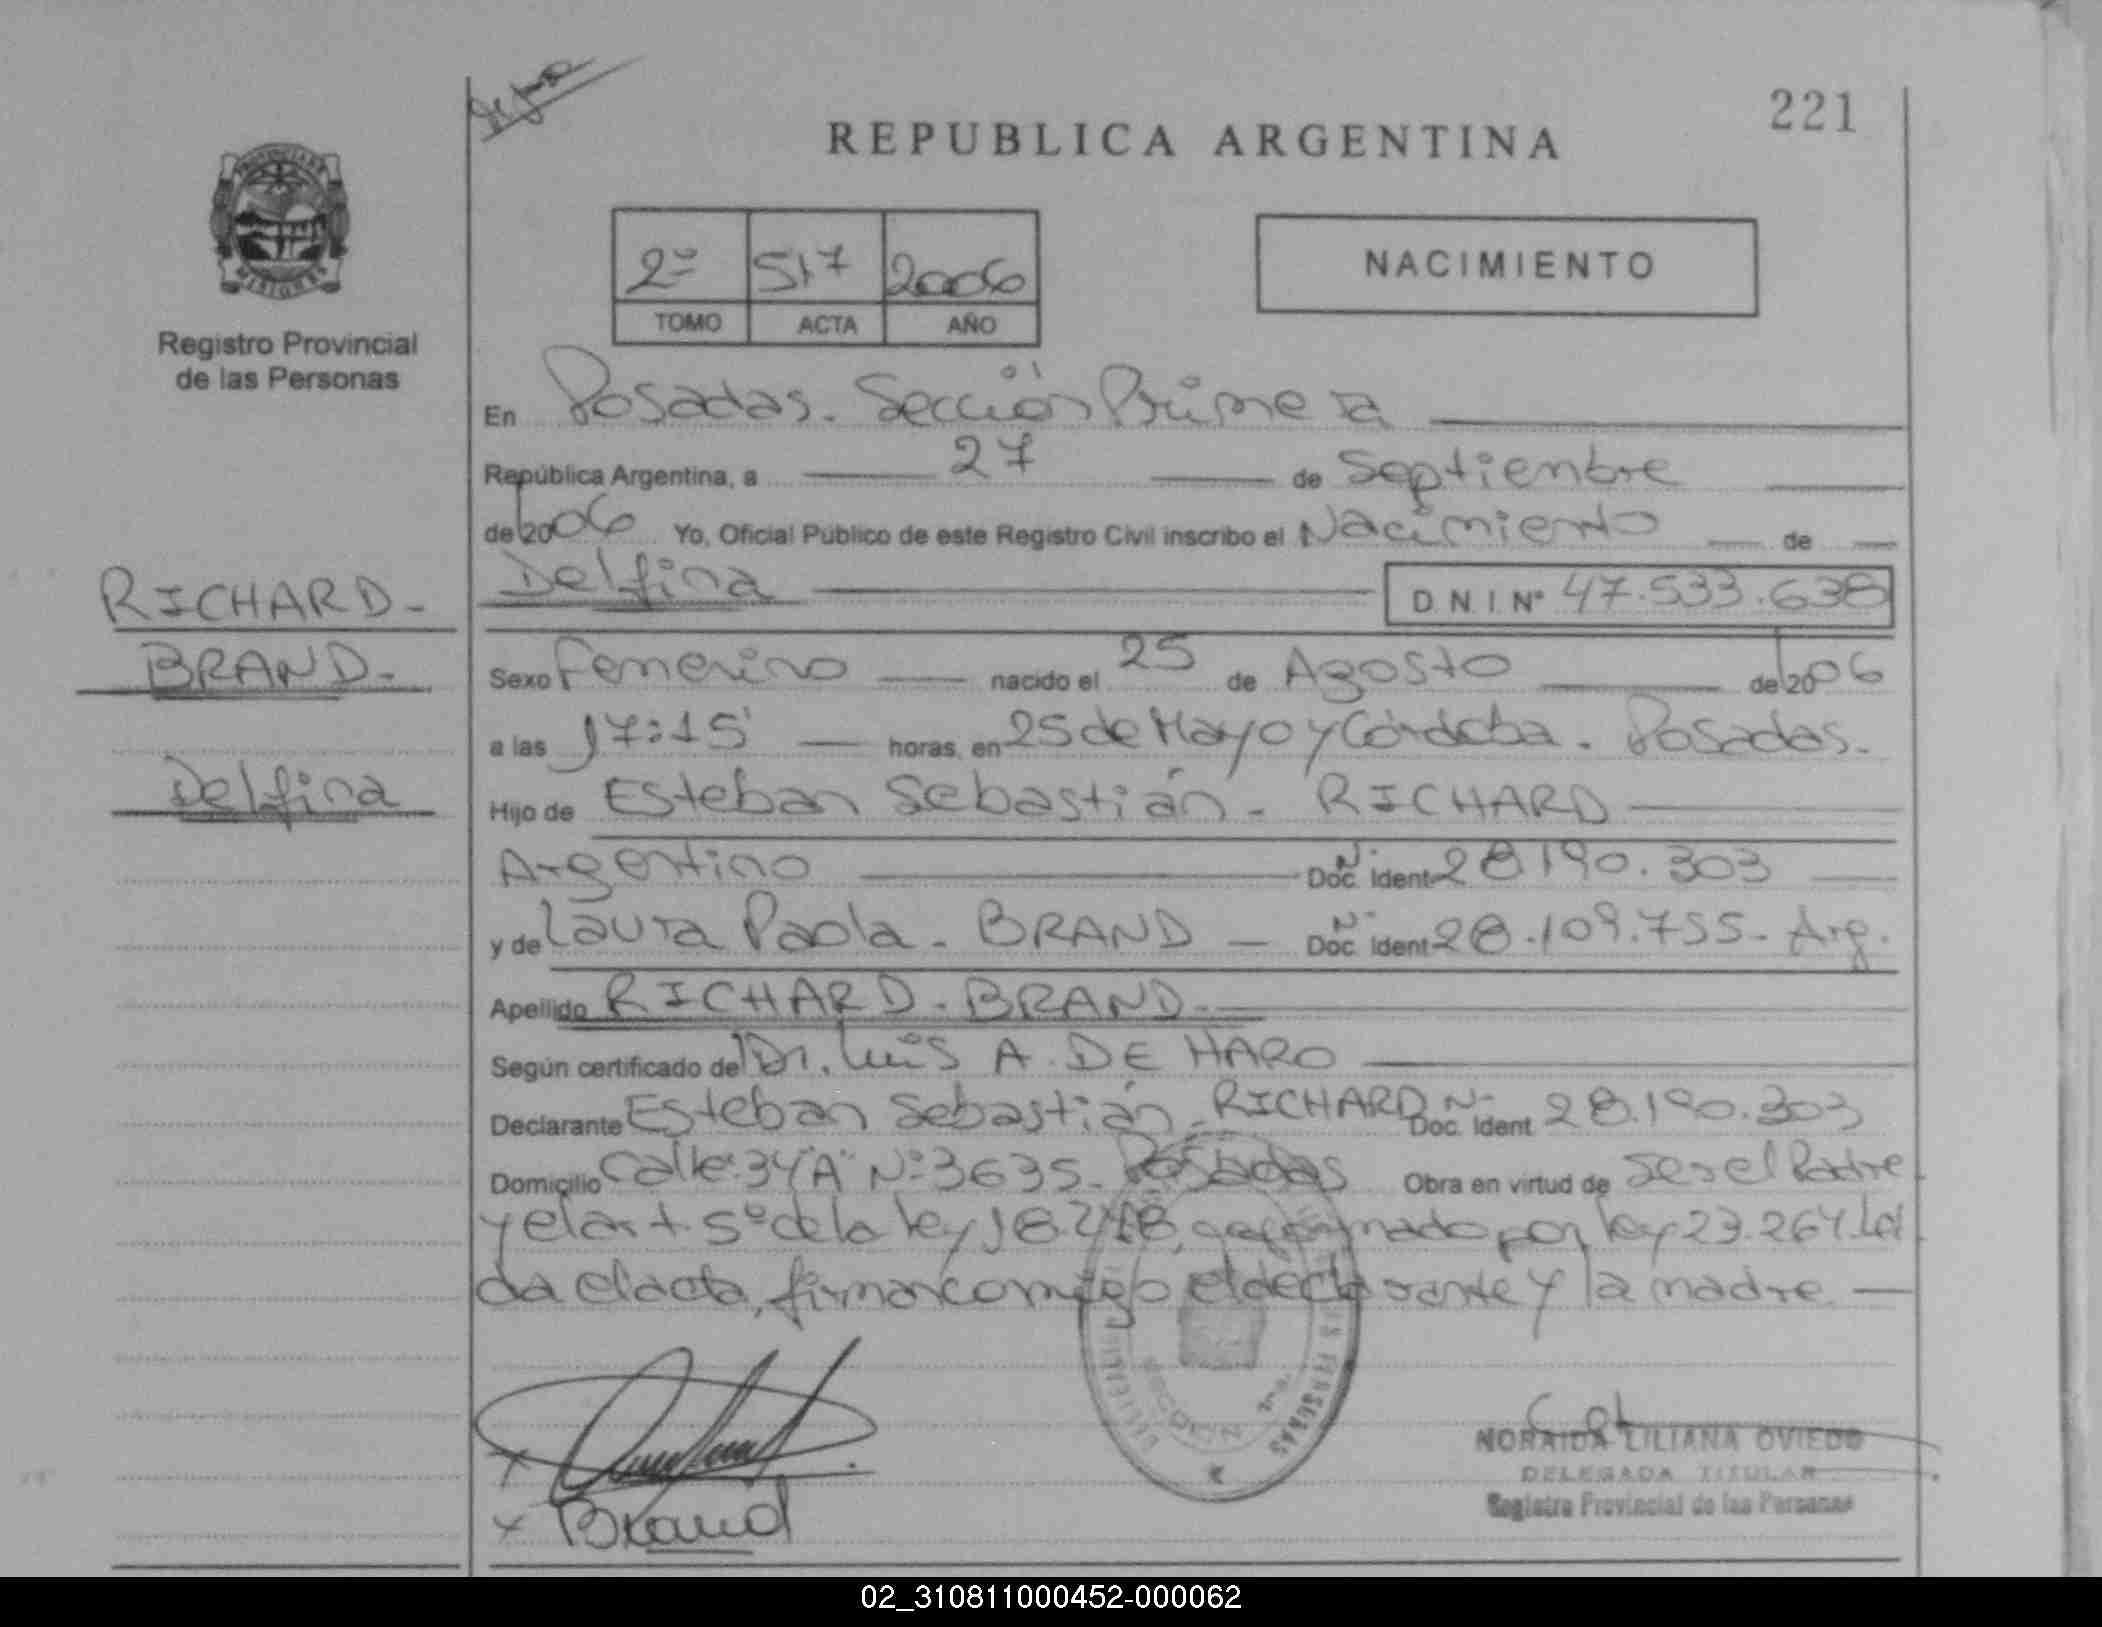 221
REPUBLICA ARGENTINA
PROVINCIA DE
MISIONES
Registro Provincial
de las Personas
2º 517 2006
TOMO ACTA AÑO
NACIMIENTO
En Posadas. Sección Primera
República Argentina, a 27 de Septiembre
de 2006 Yo, Oficial Público de este Registro Civil inscribo el Nacimiento de
Delfina D.N.I. Nº 47.533.638
RICHARD-
BRAND-
Delfina
Sexo Femenino nacido el 25 de Agosto de 2006
a las 17:15' horas, en 25 de Mayo y Córdoba. Posadas.
Hijo de Esteban Sebastián - RICHARD
Argentino Doc. Ident Nº 28.190.303
y de Laura Paola - BRAND - Doc. Ident Nº 28.109.755 - Arg.
Apellido RICHARD - BRAND -
Según certificado de Dr. Luis A. DE HARO
Declarante Esteban Sebastián - RICHARD Doc. Ident Nº 28.190.303
Domicilio Calle: 34 "A" Nº 3635 - Posadas Obra en virtud de ser el Padre
y el art. 5º de la ley 18.248, reformado por ley 23.264. Leí
da el acta, firman conmigo el declarante y la madre. —
SECCION 1ra.
x
x Brand
NORAIDA LILIANA OVIEDO
DELEGADA TITULAR
Registro Provincial de las Personas
02_310811000452-000062